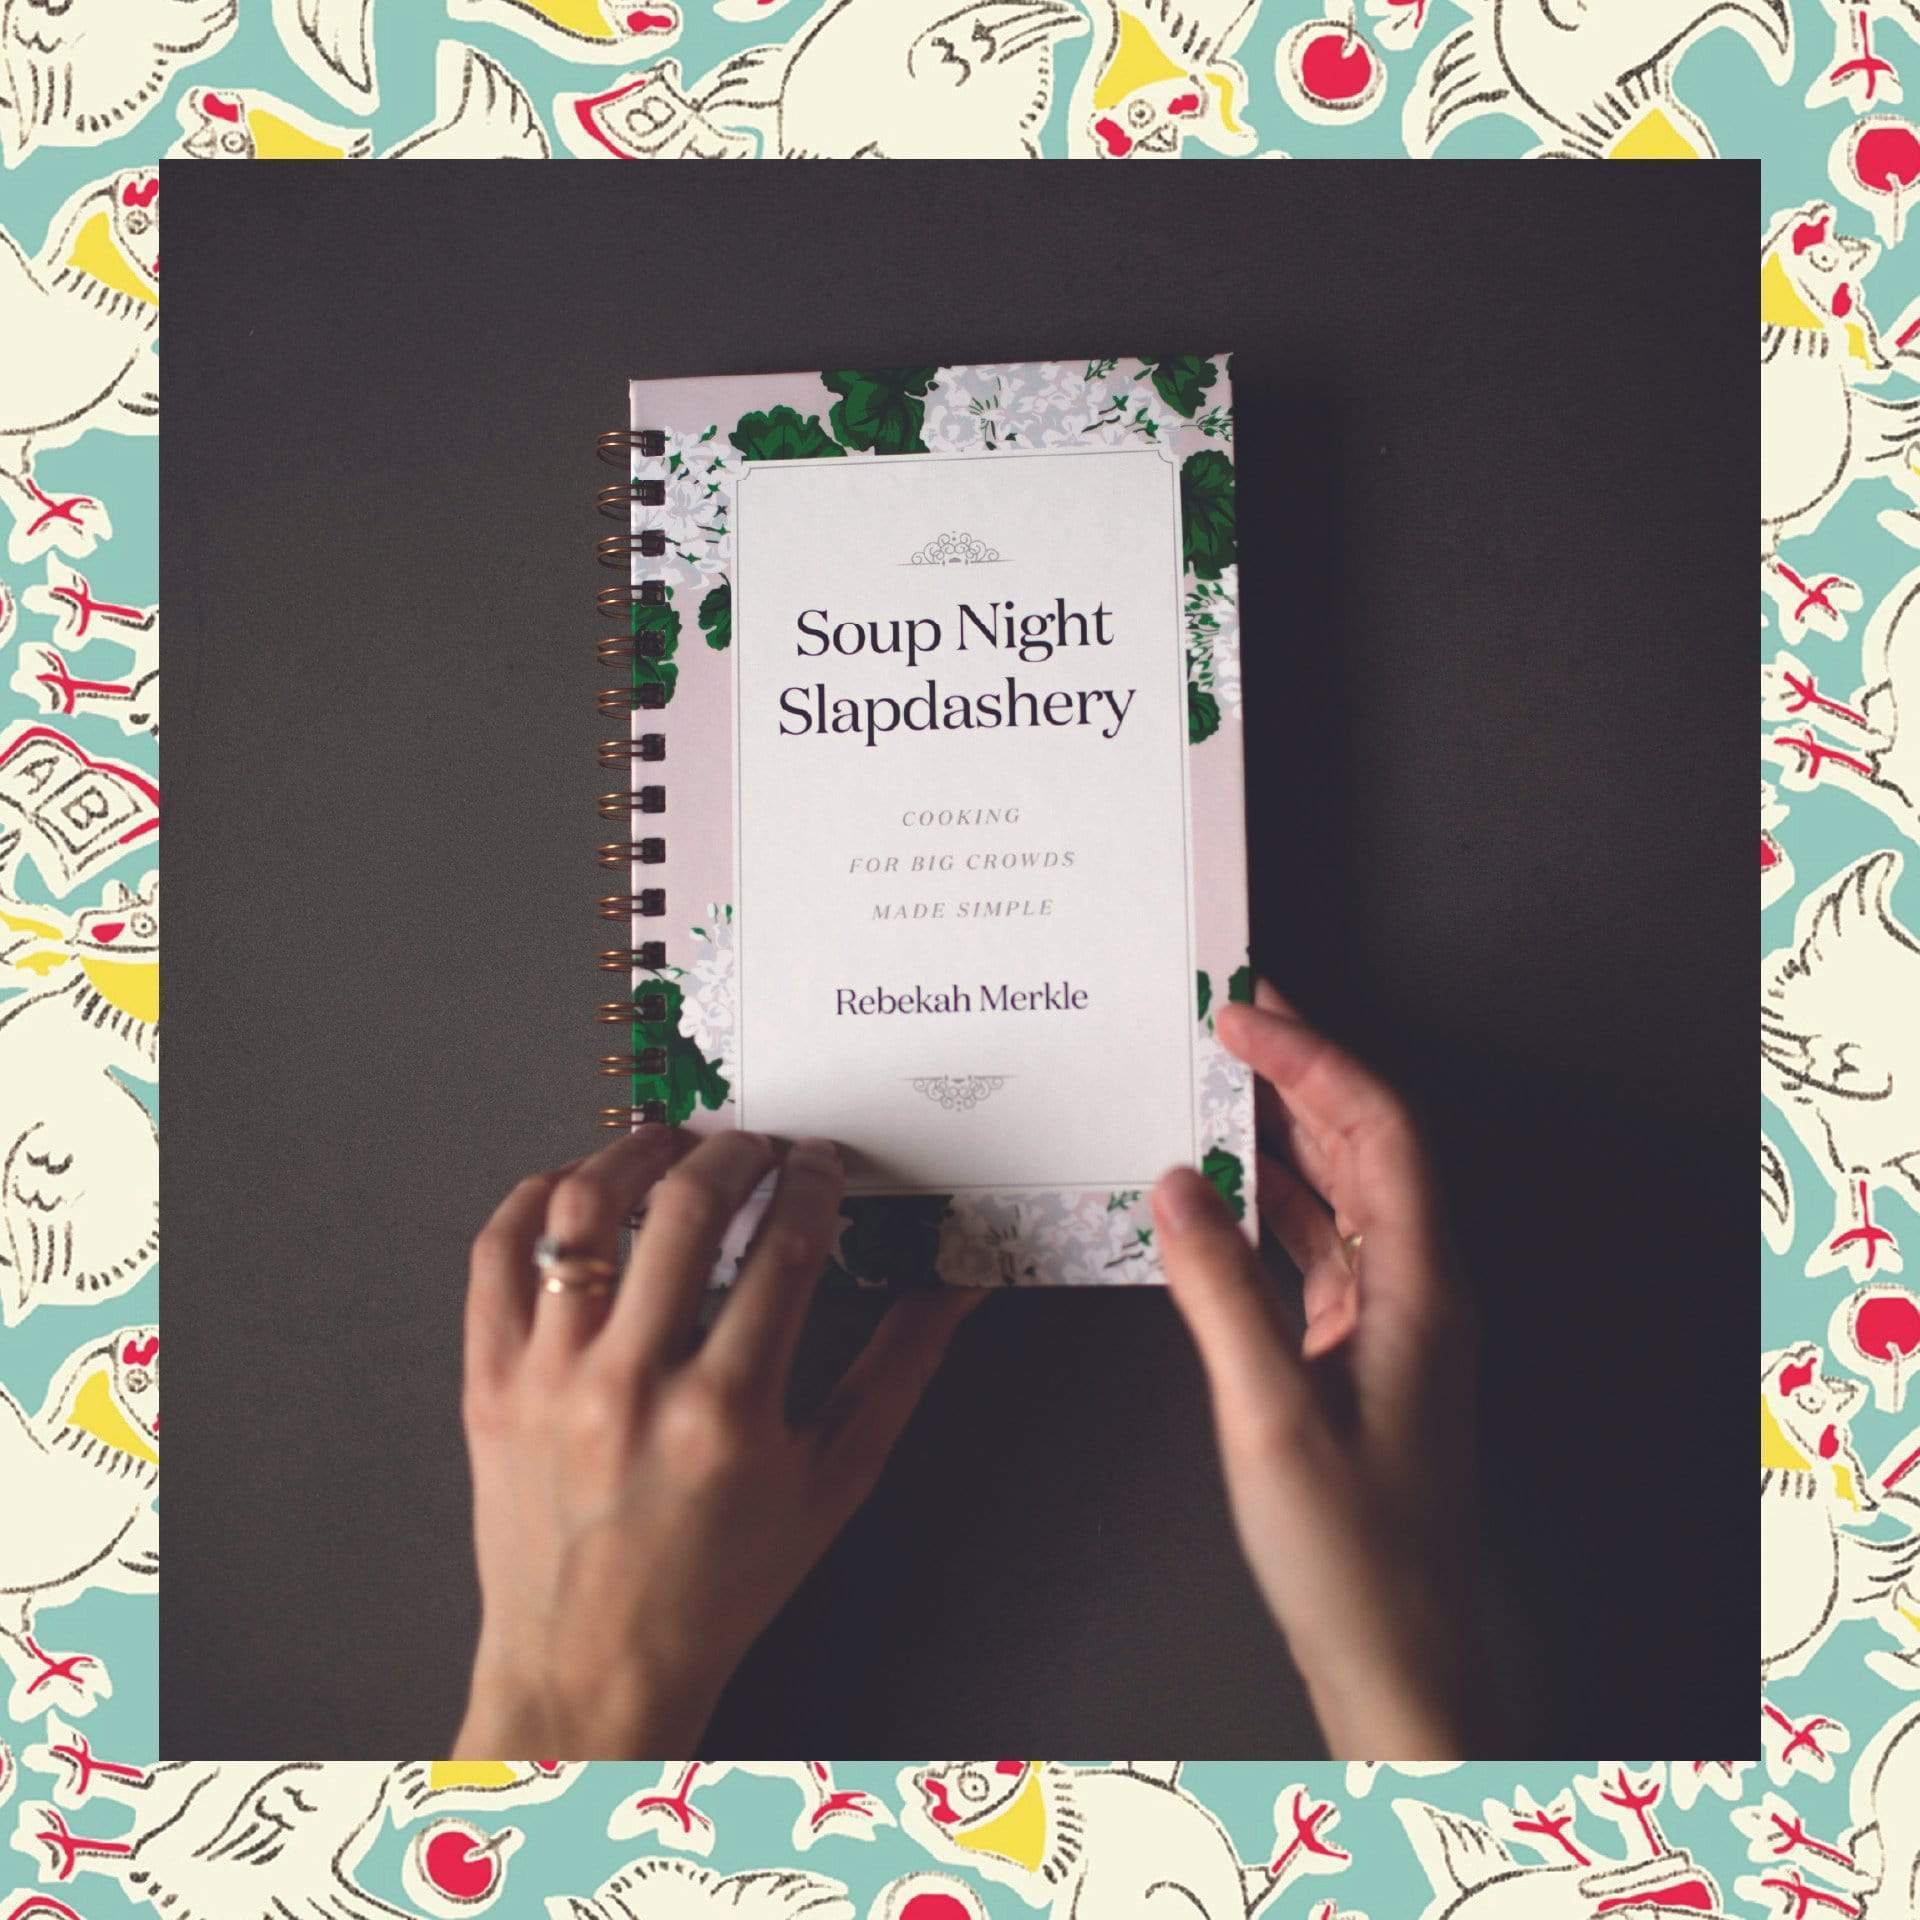 B
A B
Soup Night
Slapdashery
COOKING
FOR BIG CROWDS
MADE SIMPLE
Rebekah Merkle